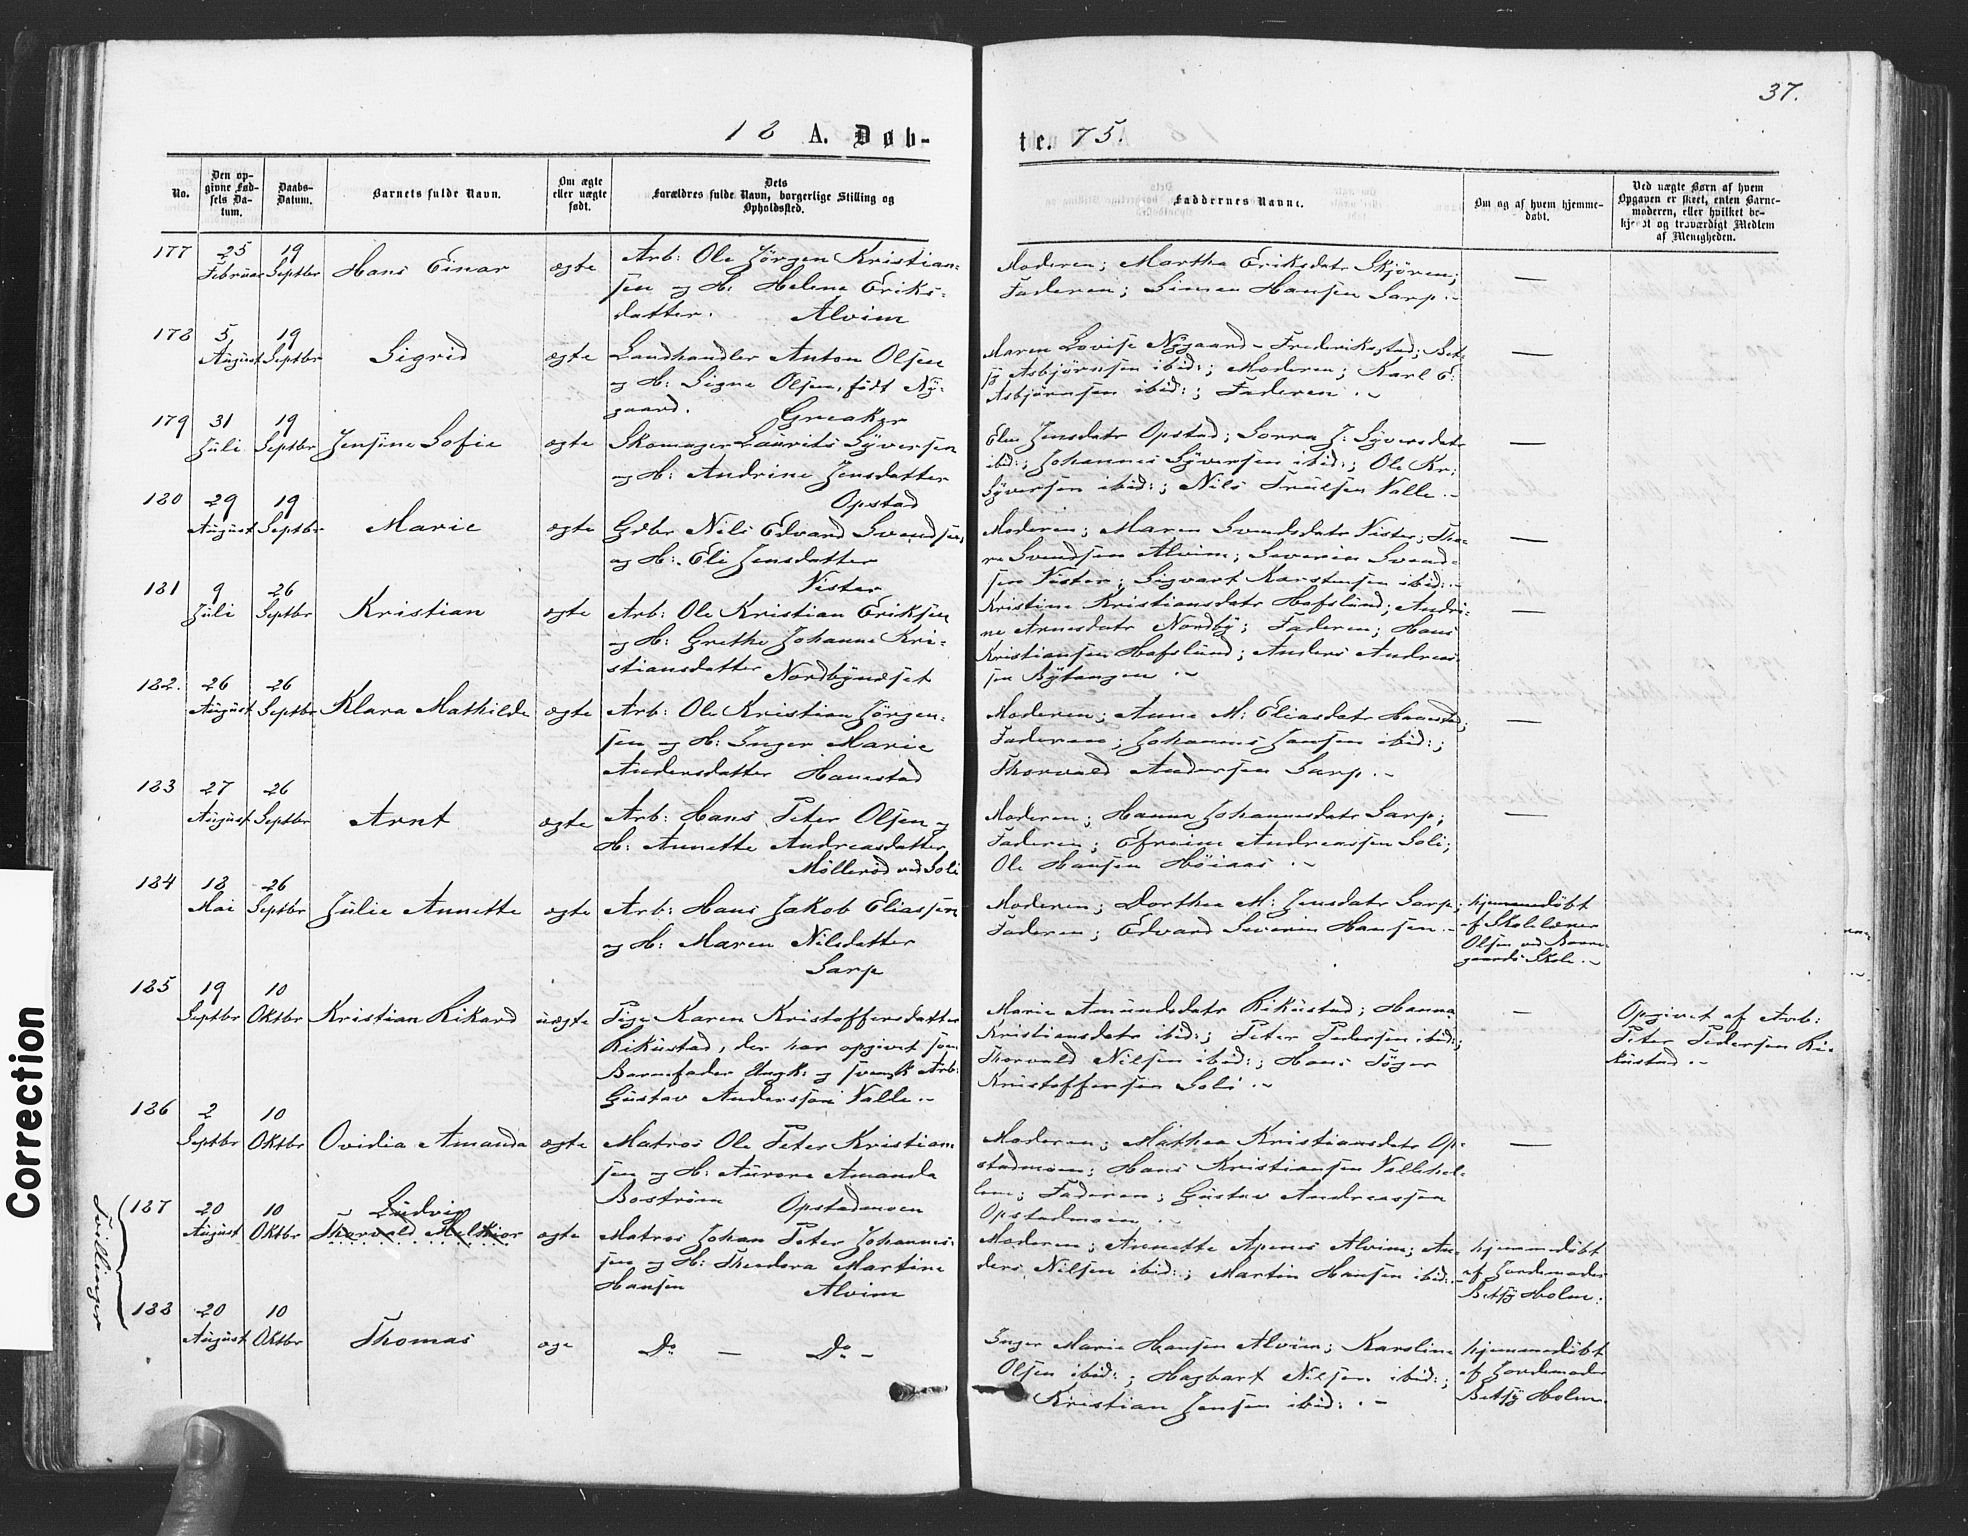 37.
18 A. Døb-
te. 75.
No.
Den op-
givne Fød-
sels Da-
tum.
Daabs-
Datum.
Barnets fulde Navn.
Om ægte
eller uægte
født.
Dets
Forældres fulde Navn, borgerlige Stilling og
Opholdssted.
Faddernes Navne.
Om og af hvem hjemme-
døbt.
Ved uægte Børn af hvem
Opgaven er skeet, enten Barne-
moderen, eller hvilket be-
kjendt og troværdigt Medlem
af Menigheden.
177 25 19
Februar Septbr Hans Einar ægte
Arb: Ole Jörgen Kristian-
sen og H: Helene Eriks-
datter. Alvim
Moderen; Martha Eriksdatr Skjören;
Faderen; Simen Hansen Sarp.-
—
178 5 19
August Septbr Sigrid ægte
Landhandler Anton Olsen
og H: Signe Olsen, født Ny-
gaard. Greaker
Maren Lovise Nygaard - Frederikstad; Bet-
sy Asbjörnsen ibid:; Moderen; Karl E:
Asbjörnsen ibid:; Faderen.-
—
179 31 19
Juli Septbr Jensine Sofie ægte
Skomager Laurits Syversen
og H: Andrine Jensdatter
Opstad
Elen Jensdatr Opstad; Sorra J: Syversdatr
ibid:; Johannes Syversen ibid:; Ole Kr:
Syversen ibid:; Nils Trulsen Valle.-
—
180 29 19
August Septbr Marie ægte
Gdbr Nils Edvard Svendsen
og H: Eli Jensdatter
Vister
Moderen; Maren Svendsdatr Vister; Tho-
re Svendsen Alvim; Severin Svend-
sen Vister; Sigvart Karstensen ibid:.-
—
181 9 26
Juli Septbr Kristian ægte
Arb: Ole Kristian Eriksen
og H: Grethe Johanne Kri-
stiansdatter Nordbyødset
Kristine Kristiansdatr Hafslund; Andri-
ne Arnesdatr Nordby; Faderen; Hans
Kristiansen Hafslund; Anders Andreas-
sen Bytangen.-
—
182. 26 26
August Septbr Klara Mathilde ægte
Arb: Ole Kristian Jörgen-
sen og H: Inger Marie
Andersdatter Hanestad
Moderen; Anne M: Eliasdatr Hanestad;
Faderen; Johannes Jansen ibid:;
Thorvald Andersen Sarp.-
—
183 27 26
August Septbr Arnt ægte
Arb: Hans Peter Olsen og
H: Annette Andreasdatter
Möllerød ved Soli
Moderen; Hanna Johannesdatr Sarp;
Faderen; Efraim Andreassen Soli;
Ole Hansen Höiaas.-
—
184 18 26
Mai Septbr Julie Annette ægte
Arb: Hans Jakob Eliassen
og H: Maren Nilsdatter
Sarp
Moderen; Dorthea M: Jensdatr Sarp;
Faderen; Edvard Severin Hansen.-
hjemmedøbt
af Skolelærer
Olsen ved Borre-
gaards Skole.-
185 19 10
Septbr Oktbr Kristian Rikard uægte
Pige Karen Kristoffersdatter
Rikustad, der har opgivet som
Barnefader Ungk: og svensk Arb:
Gustav Anderssen Valle.-
Marie Amundsdatr Rikustad; Hanna
Kristiansdatr ibid:; Peter Pedersen ibid:;
Thorvald Nilsen ibid:; Hans Jöger
Kristoffersen Soli.-
—
Opgivet af Arb:
Peter Pedersen Ri-
kustad.-
186 2 10
Septbr Oktbr Ovidia Amanda ægte
Matros Ole Peter Kristian-
sen og H: Aurora Amanda
Boström Opstadmoen
Moderen; Mathea Kristiansdatr Op-
stadmoen; Hans Kristiansen Vallehol-
len; Faderen; Gustav Andreassen
Opstadmoen.-
—
Tvillinger
187 20 10
Ludvig
August Oktbr Thorvald Melkior ægte
Matros Johan Peter Johannes-
sen og H: Theodora Martine
Hansen Alvim
Moderen; Annette Apenes Alvim; An-
ders Nilsen ibid:; Martin Hansen ibid:.-
hjemmedøbt
af Jordemoder
Betsy Holm.
188 20 10
August Oktbr Thomas ægte
Do — Do -
Inger Marie Hansen Alvim; Karoline
Olsen ibid:; Hagbart Nilsen ibid:;
Kristian Jensen ibid:.-
hjemmedøbt
af Jordemoder
Betsy Holm.
Correction